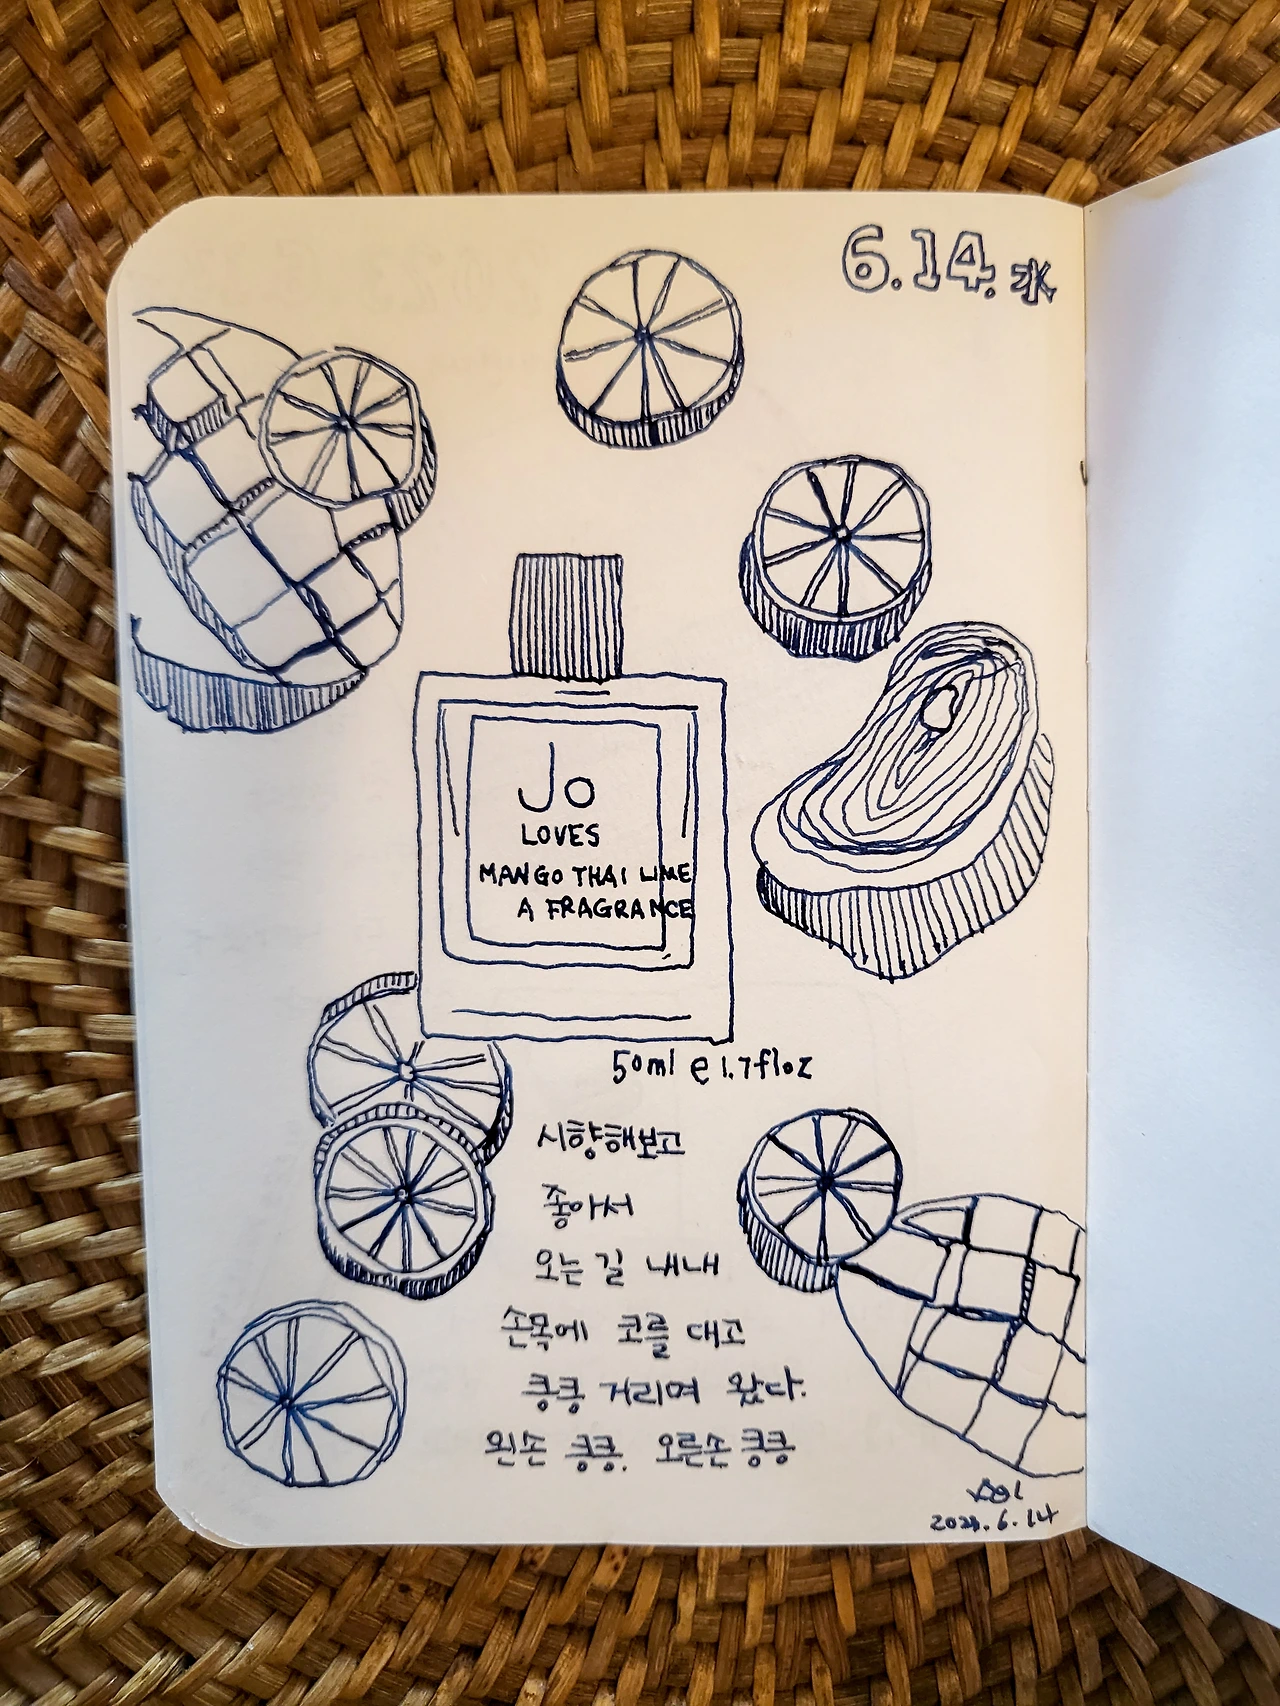 6.14. 水
Jo
LOVES
MANGO THAI LIME
A FRAGRANCE
50ml e 1.7fl oz
시향해보고
좋아서
오는 길 내내
손목에 코를 대고
킁킁 거리며 왔다.
왼손 킁킁. 오른손 킁킁
6.14